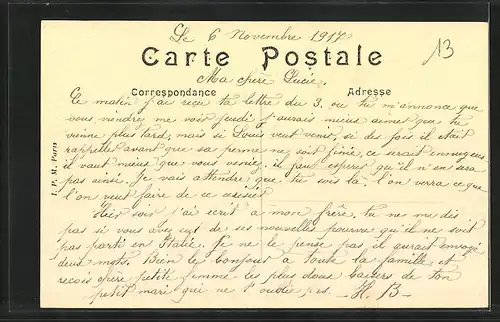 Le 6 Novembre 1917
13
Carte Postale
Ma chère Lucie,
Correspondance
Adresse
Ce matin j'ai reçu ta lettre du 3, ou tu m'annonce que
vous viendrez me voir jeudi j'aurais mieux aimer que, tu
vienne plus tard, mais si Louis veut venir, si des fois il était
rappeller avant que sa perme ne soit finie, ce serait ennuyeux
il vaut mieux que vous veniez. il faut espérer qu'il n'en sera
pas ainsi. Je vais attendre que, tu sois là. l'on verra ce que
l'on veut faire de ce
Hier soir j'ai ecrit a mon frère, tu ne me dis
pas si vous avez eut de ses nouvelles pourvu qu'il ne soit
pas parti en Italie. Je ne le pense pas, il aurait envoyé
deux mots. Bien le bonjour a toute la famille, et
recois chère petite femme les plus doux baisers de ton
petit mari qui ne t'oublie pas. — H. B —
I. P. M. Paris